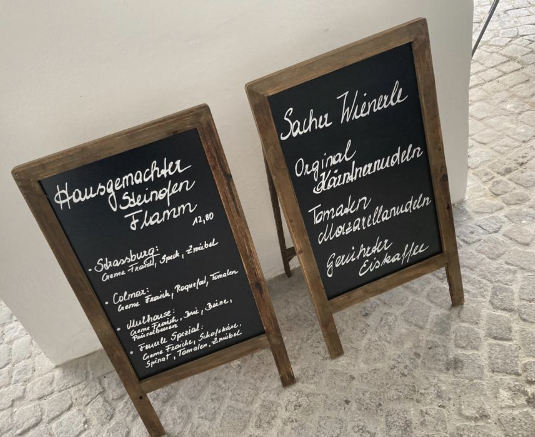 Hausgemachter
Steinofen
Flamm
12,80
• Strassburg:
Creme Fraich, Speck, Zwiebel
• Colmar:
Creme Fraich, Roquefal, Tomaten
• Mulhouse:
Creme Fraich, Brie, Birne,
Preiselbeeren
• Feuille Spezial:
Creme Fraiche, Schafskäse,
Spinat, Tomaten, Zwiebel
Sacher Wienerle
Orginal
Kärntnernudeln
Tomaten
Mozarellanudeln
Gerührter
Eiskaffee